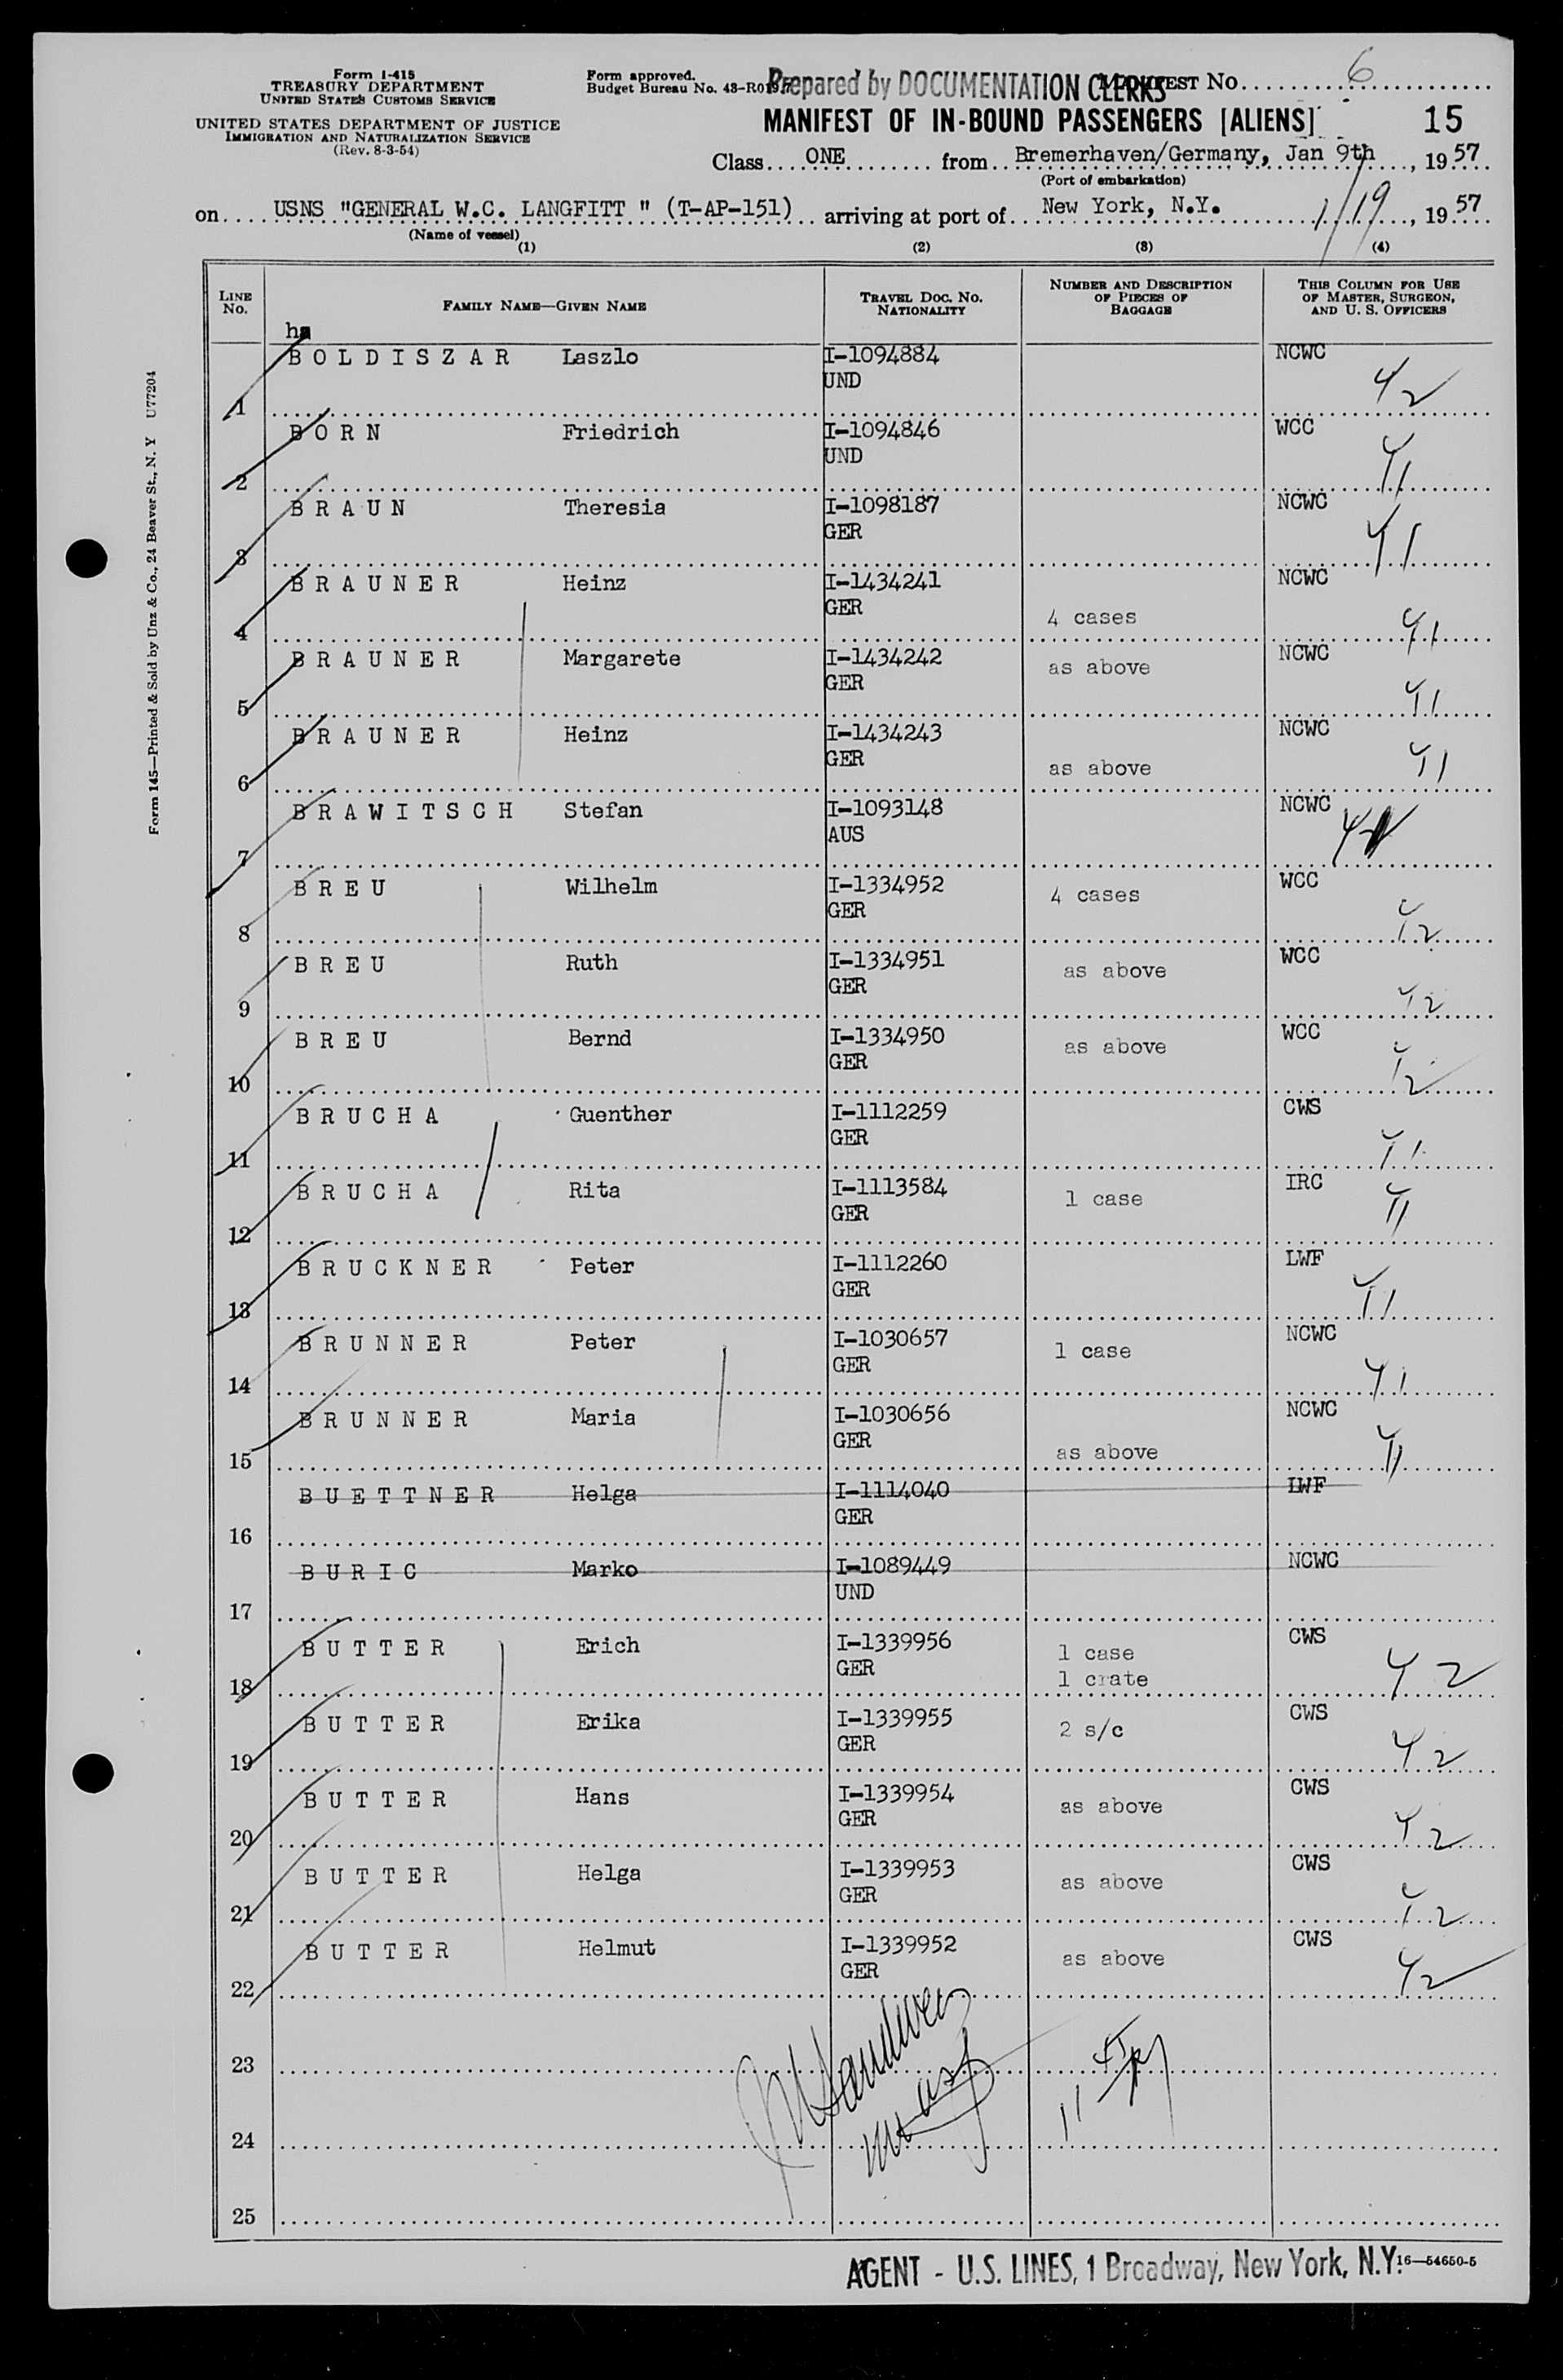 Form I-415
TREASURY DEPARTMENT
UNITED STATES CUSTOMS SERVICE
UNITED STATES DEPARTMENT OF JUSTICE
IMMIGRATION AND NATURALIZATION SERVICE
(Rev. 8-3-54)
Form approved.
Budget Bureau No. 43-R019.7
Prepared by DOCUMENTATION CLERKS
MANIFEST No. 6
MANIFEST OF IN-BOUND PASSENGERS [ALIENS] 15
Class ONE from Bremerhaven/Germany, Jan 9th, 1957
(Port of embarkation)
on USNS "GENERAL W.C. LANGFITT " (T-AP-151) arriving at port of New York, N.Y. 1/19, 1957
(Name of vessel)
(1) (2) (3) (4)
LINE No. FAMILY NAME—GIVEN NAME TRAVEL DOC. No. NATIONALITY NUMBER AND DESCRIPTION OF PIECES OF BAGGAGE THIS COLUMN FOR USE OF MASTER, SURGEON, AND U. S. OFFICERS
ha
BOLDISZAR Laszlo I-1094884 NCWC
1 UND 42
BORN Friedrich I-1094846 WCC
2 UND 41
BRAUN Theresia I-1098187 NCWC
3 GER 41
BRAUNER Heinz I-1434241 NCWC
4 GER 4 cases 41
BRAUNER Margarete I-1434242 as above NCWC
5 GER 41
BRAUNER Heinz I-1434243 NCWC
6 GER as above 41
BRAWITSCH Stefan I-1093148 NCWC
7 AUS
BREU Wilhelm I-1334952 4 cases WCC
8 GER 42
BREU Ruth I-1334951 as above WCC
9 GER 42
BREU Bernd I-1334950 as above WCC
10 GER 42
BRUCHA Guenther I-1112259 CWS
11 GER 41
BRUCHA Rita I-1113584 1 case IRC
12 GER 41
BRUCKNER Peter I-1112260 LWF
13 GER 41
BRUNNER Peter I-1030657 1 case NCWC
14 GER 41
BRUNNER Maria I-1030656 NCWC
15 GER as above 41
BUETTNER Helga I-1114040 LWF
16 GER
BURIC Marko I-1089449 NCWC
17 UND
BUTTER Erich I-1339956 1 case CWS
18 GER 1 crate 42
BUTTER Erika I-1339955 2 s/c CWS
19 GER 42
BUTTER Hans I-1339954 as above CWS
20 GER 42
BUTTER Helga I-1339953 as above CWS
21 GER 42
BUTTER Helmut I-1339952 as above CWS
22 GER 42
23
24
25
AGENT - U.S. LINES, 1 Broadway, New York, N.Y.
16—54650-5
Form 145—Printed & Sold by Unz & Co., 24 Beaver St., N. Y U77204